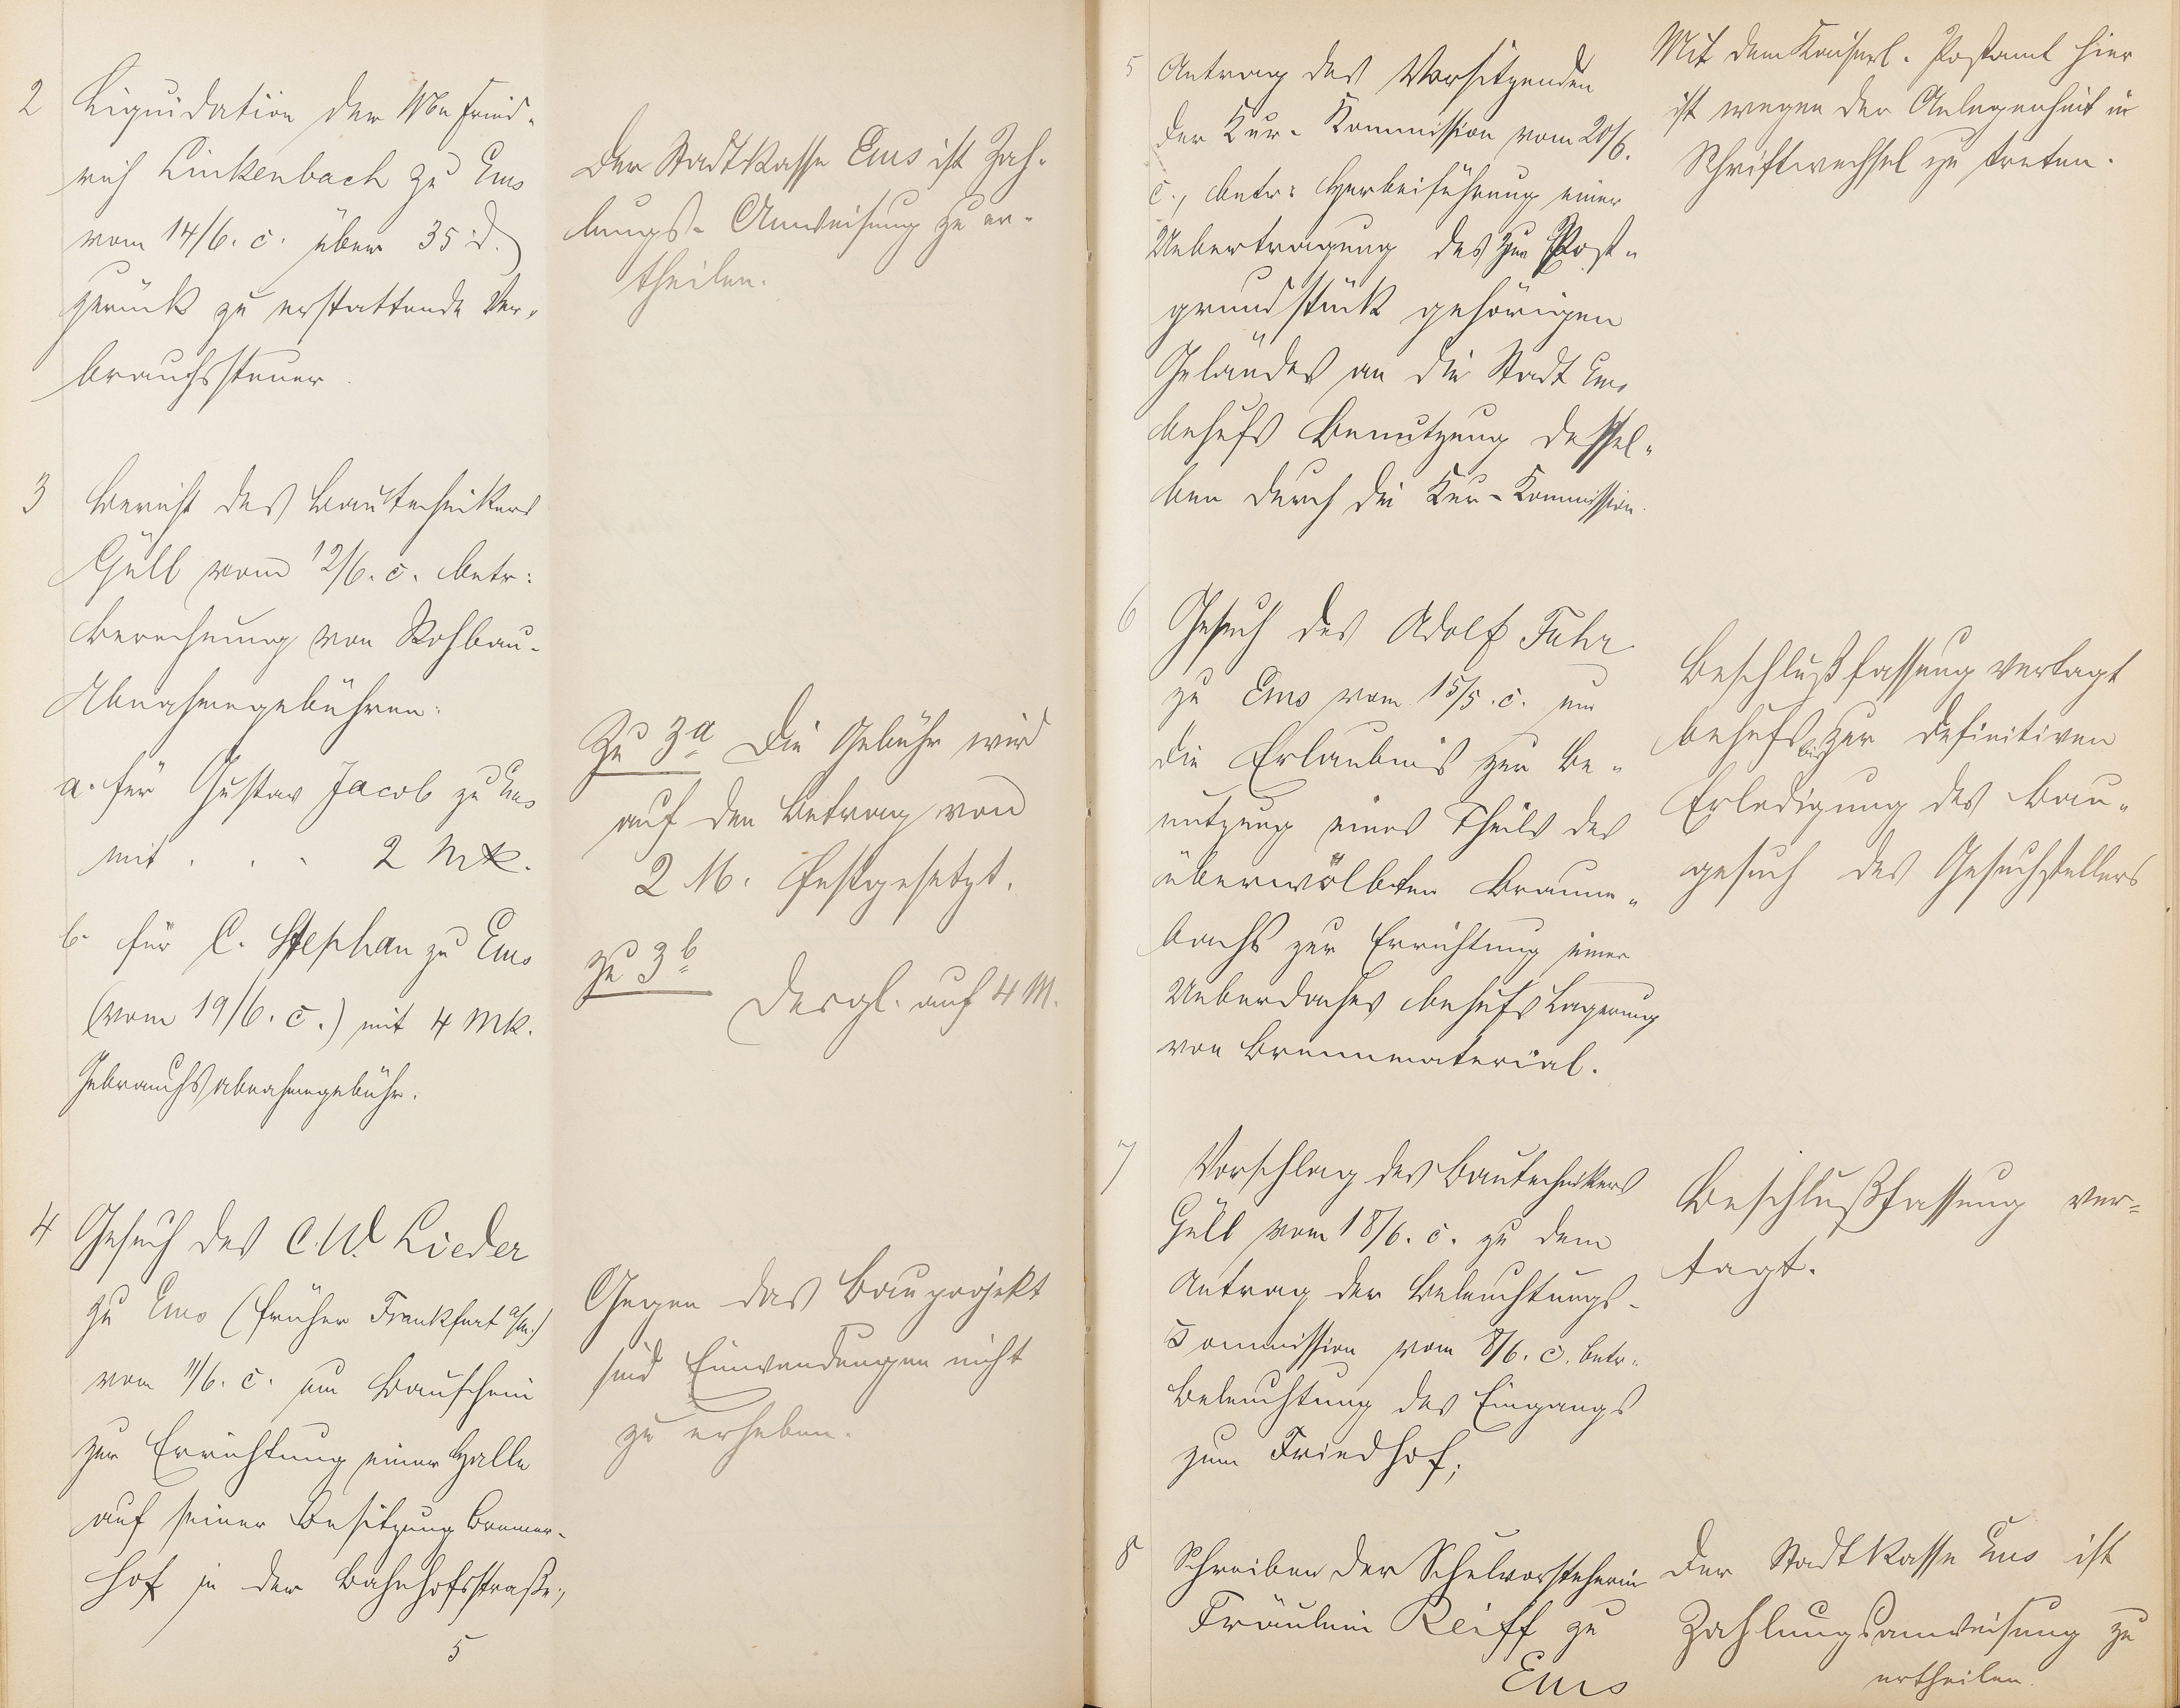 2 Liquidation der Wwe Fried-
rich Linkenbach zu Ems
vom 14/6. c. über 35 d.
zurück zu erstattende Ver-
brauchssteuer.
Der Stadtkasse Ems ist Zah-
lungs-Anweisung zu er-
theilen.
3 Bericht des Bautechnikers
Güll vom 12/6. c. betr:
Berechnung von Rohbau-
Abnahmegebühren:
a. für Gustav Jacob zu Ems
mit . . . 2 Mk.
b. für C. Stephan zu Ems
(vom 19/6. c.) mit 4 Mk.
Gebrauchsabnahmegebühr.
Zu 3a Die Gebühr wird
auf den Betrag von
2 M. festgesetzt.
zu 3b
Desgl. auf 4 M.
4 Gesuch des C. W. Lieder
zu Ems (früher Frankfurt a/M.)
vom 11/6. c. um Bauschein
zur Errichtung einer Halle
auf seiner Besitzung Bremer-
hof in der Bahnhofsstraße;
Gegen das Bauprojekt
sind Einwendungen nicht
zu erheben.
5
5 Antrag des Vorsitzenden
der Kur-Kommission vom 20/6.
c., betr: Herbeiführung einer
Uebertragung des zur Post-
grundstück gehörigen
Geländes an die Stadt Ems
behufs Benutzung dessel-
ben durch die Kur-Kommission.
Mit dem Kaiserl. Postamt hier
ist wegen der Angelegenheit in
Schriftwechsel zu treten.
6 Gesuch des Adolf Fuhr
zu Ems vom 15/5. c. um
die Erlaubnis zur Be-
nutzung eines Theils des
überwölbten Braune-
bachs zur Errichtung eines
Ueberdaches behufs Lagerung
von Brennmaterial.
Beschlußfassung vertagt
behufs bis zur definitiven
Erledigung des Bau-
gesuch des Gesuchstellers
7 Vorschlag des Bautechnikers
Güll vom 18/6. c. zu dem
Antrag der Beleuchtungs-
Kommission vom 8/6. c. betr.
Beleuchtung des Eingangs
zum Friedhof;
Beschlußfassung ver-
tagt.
8 Schreiben der Schulvorsteherin
Fräulein Reiff zu
Ems
Der Stadtkasse Ems ist
Zahlungsanweisung zu
ertheilen.